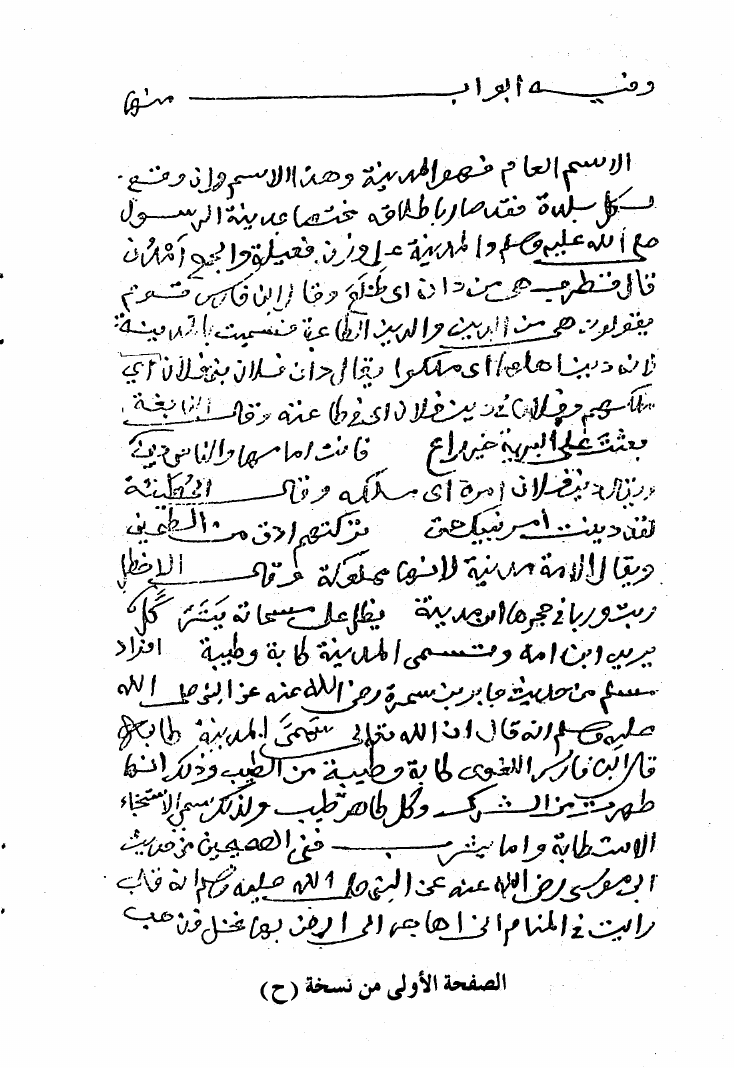 وفيه أبواب منها
الاسم العام فهو المدينة وهذا الاسم وإن وقع
لكل بلدة فقد صار باطلاقه مختصا بمدينة الرسول
صلى الله عليه وسلم والمدينة على وزن فعيلة والجمع مدن
قال قطرب هي من دان اي طاع وقال ابن فارس قوم
يقولون هي من الدين والدين الطاعة فسميت بالمدينة
لانه دينا هلها اي ملكوا يقال دان فلان بني فلان أي
ملكهم وفلان في دين فلان اي في طاعته وقال النابغة
بعثت على البرية خير راع فانت امامها والناس دين
ويقال دين فلان امره اي ملكه وقال الحطيئة
لقد دينت امر بنيك حتى تركتهم ادق من الطحين
ويقال للامة مدينة لانها مملوكة وقال الاخطل
ربت وربا في حجرها ابن مدينة يظل على مسحاته يتركل
يريد ابن امة وتسمى المدينة طابة وطيبة افراد
مسلم من حديث جابر بن سمرة رضي الله عنه عن النبي صلى الله
عليه وسلم انه قال ان الله تعالى سمى المدينة طابة
قال ابن فارس اللغوي طابة وطيبة من الطيب وذلك انها
طهرت من الشرك وكل طاهر طيب ولذلك سمي الاستنجاء
الاستطابة واما يثرب ففي الصحيحين من حديث
ابي موسى رضي الله عنه عن النبي صلى الله عليه وسلم انه قال
رايت في المنام اني اهاجر الى ارض بها نخل فذهب
الصفحة الأولى من نسخة (ح)